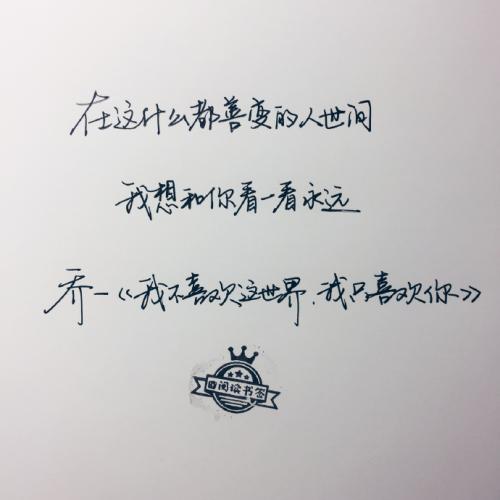 在这什么都善变的人世间
我想和你看一看永远
乔一《我不喜欢这世界，我只喜欢你》
阅读书签